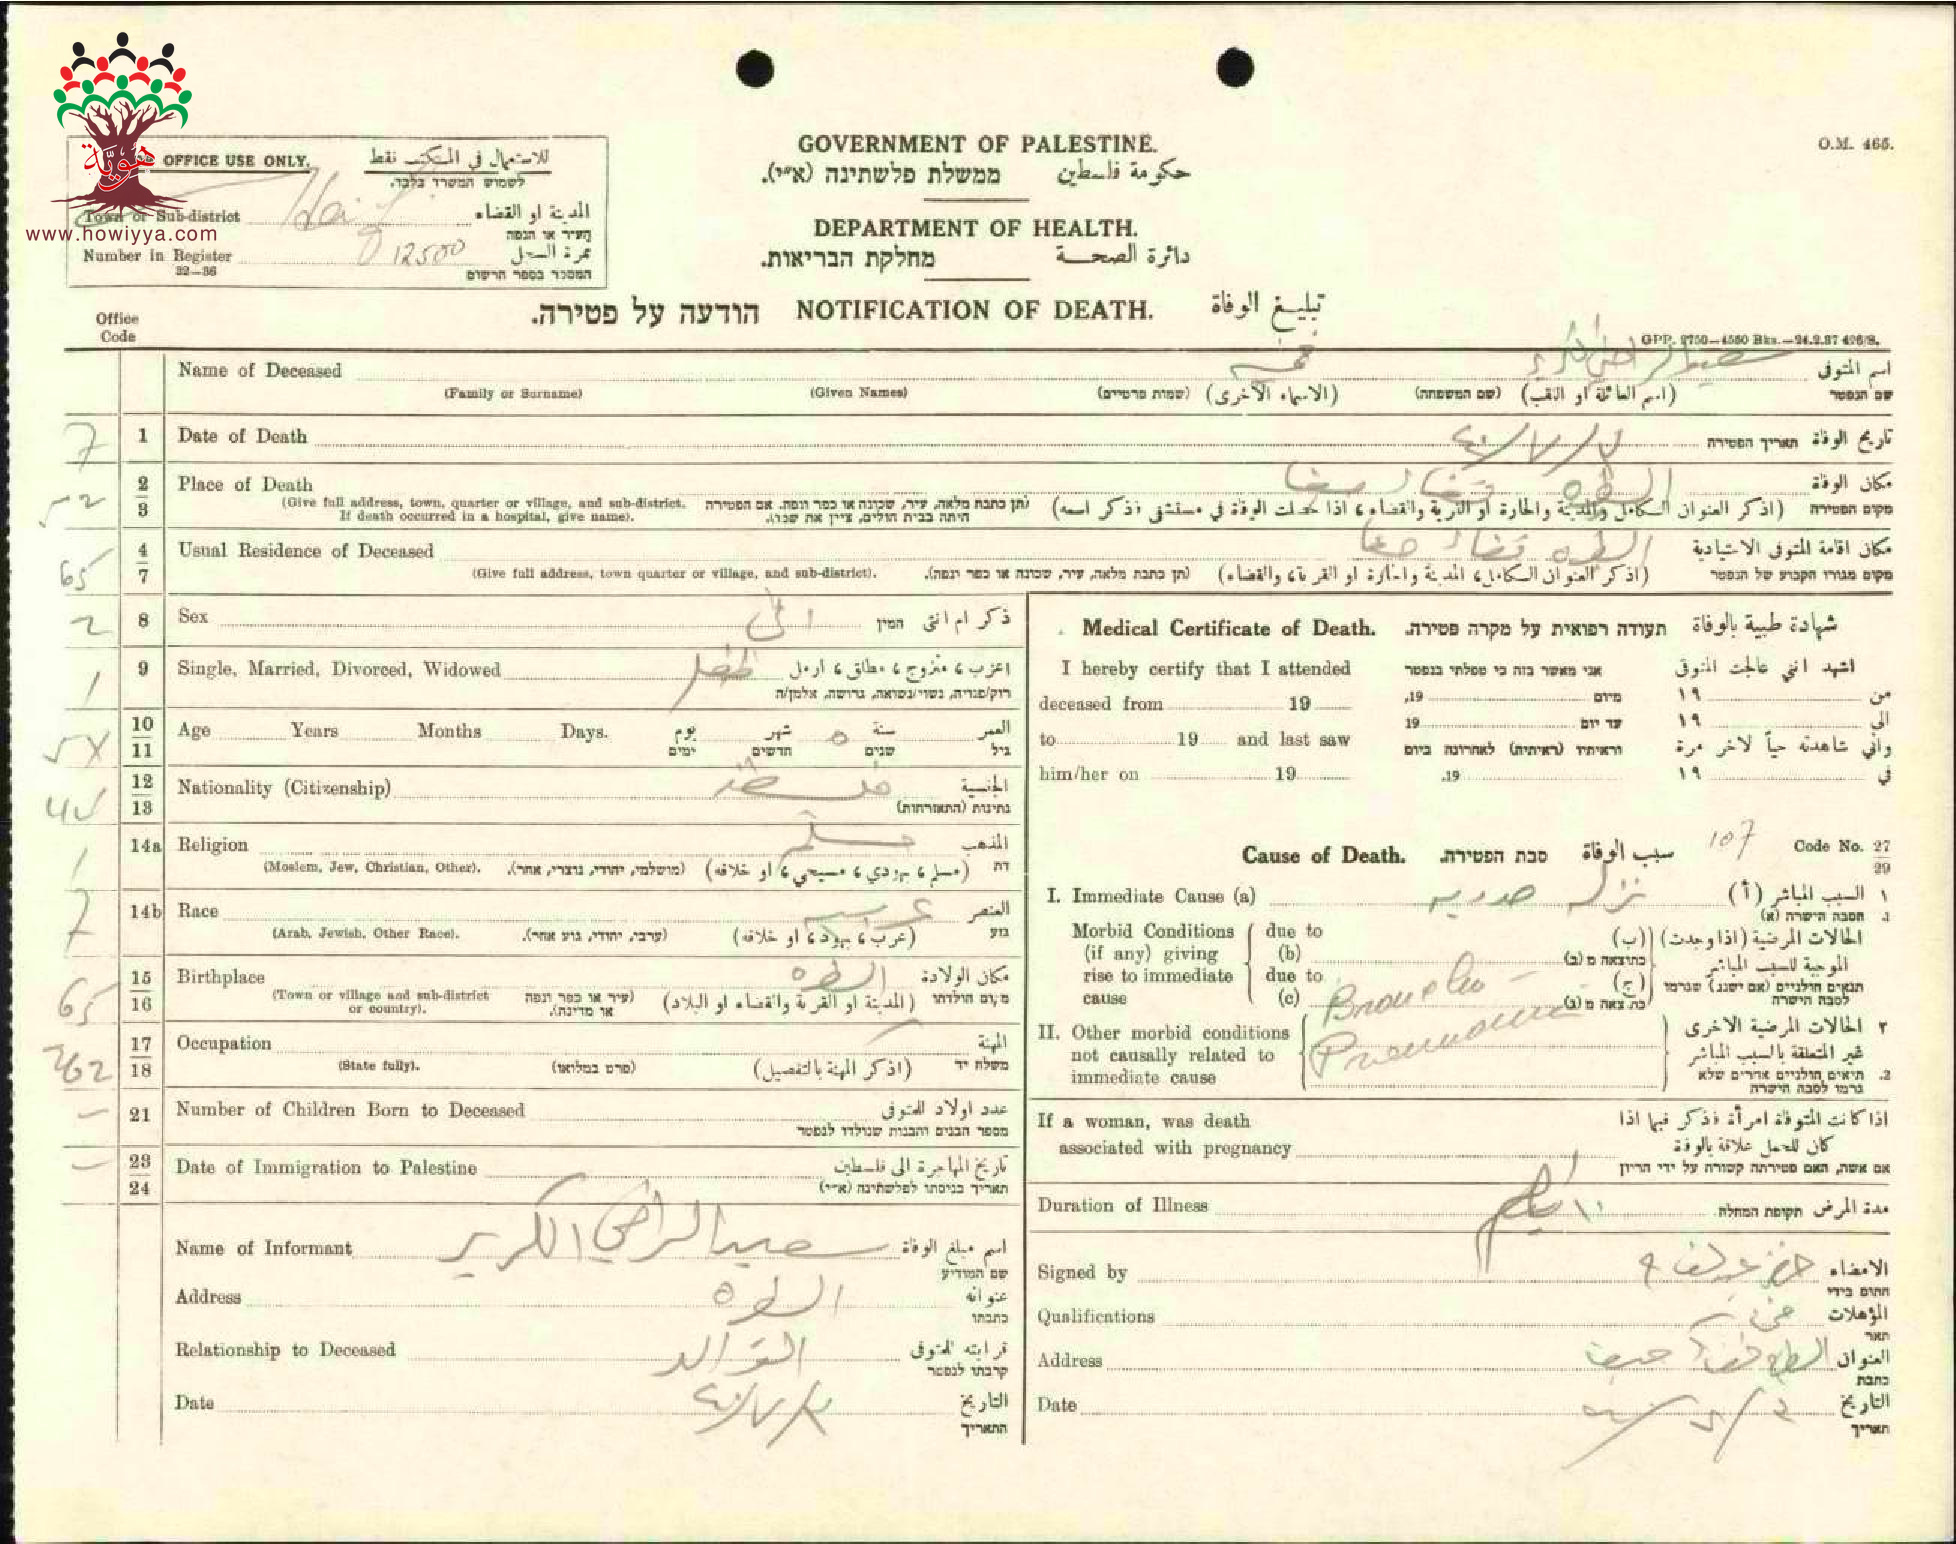 هوية
www.howiyya.com
O.M. 465.
OFFICE USE ONLY. للاستعمال في المكتب فقط
לשמוש המשרד בלבד.
Town or Sub-district المدينة او القضاء
העיר או הנפה
Number in Register 12500 نمرة السجل
32—36 המספר בספר הרשום
GOVERNMENT OF PALESTINE.
ממשלת פלשתינה (א״י). حكومة فلسطين
DEPARTMENT OF HEALTH.
מחלקת הבריאות. دائرة الصحة
הודעה על פטירה. NOTIFICATION OF DEATH. تبليغ الوفاة
Office Code
GPP. 9750—4550 Bks.—24.2.37 426/S.
Name of Deceased اسم المتوفى
(Family or Surname) (Given Names) (שמות פרטיים) (الاسماء الاخرى) (שם המשפחה) (اسم العائلة او اللقب) שם הנפטר
7 1 Date of Death תאריך הפטירה تاريخ الوفاة
52 2 3 Place of Death الطيره قضاء حيفا مكان الوفاة
(Give full address, town, quarter or village, and sub-district. If death occurred in a hospital, give name). (תן כתבת מלאה, עיר, שכונה או כפר ונפה. אם הפטירה היתה בבית חולים, ציין את שמו). (اذكر العنوان الكامل والمدينة والحارة او القرية والقضاء، اذا حصلت الوفاة في مستشفى فذكر اسمه) מקום הפטירה
65 4 7 Usual Residence of Deceased الطيره قضاء حيفا مكان اقامة المتوفى الاعتيادية
(Give full address, town quarter or village, and sub-district). (תן כתבת מלאה, עיר, שכונה או כפר ונפה). (اذكر العنوان الكامل، المدينة والحارة او القرية، والقضاء) מקום מגורו הקבוע של הנפטר
2 8 Sex انثى המין ذكر ام انثى
1 9 Single, Married, Divorced, Widowed اعزب، متزوج، مطلق، ارمل
רוק/פנויה, נשוי/נשואה, גרושה, אלמן/ה
10 11 Age Years Months Days. يوم شهر ٥ سنة العمر
ימים חדשים שנים גיל
12 13 Nationality (Citizenship) الجنسية
נתינות (התאזרחות)
1 14a Religion مسلم المذهب
(Moslem, Jew, Christian, Other). (מושלמי, יהודי, נוצרי, אחר). (مسلم، يهودي، مسيحي، او خلافه) דת
7 14b Race العنصر
(Arab, Jewish, Other Race). (ערבי, יהודי, גזע אחר). (عرب، يهود، او خلافه) גזע
65 15 16 Birthplace الطيره مكان الولادة
(Town or village and sub-district or country). (עיר או כפר ונפה או מדינה). (المدينة او القرية والقضاء او البلاد) מקום הולדתו
17 18 Occupation المهنة
(State fully). (פרט במלואו) (اذكر المهنة بالتفصيل) משלח יד
21 Number of Children Born to Deceased عدد اولاد المتوفى
מספר הבנים והבנות שנולדו לנפטר
23 24 Date of Immigration to Palestine تاريخ المهاجرة الى فلسطين
תאריך כניסתו לפלשתינה (א״י)
Name of Informant اسم مبلغ الوفاة
שם המודיע
Address الطيره عنوانه
כתבתו
Relationship to Deceased الوالد قرابته للمتوفى
קרבתו לנפטר
Date التاريخ
התאריך
Medical Certificate of Death. תעודה רפואית על מקרה פטירה. شهادة طبية بالوفاة
I hereby certify that I attended אני מאשר בזה כי טפלתי בנפטר اشهد انني عالجت المتوفى
deceased from 19 מיום 19, من ١٩
to 19 and last saw עד יום 19 الى ١٩
וראיתיו (ראיתיה) לאחרונה ביום واني شاهدته حياً لاخر مرة
him/her on 19 19. في ١٩
Cause of Death. סבת הפטירה. سبب الوفاة 107 Code No. 27 29
I. Immediate Cause (a) نزله صدريه السبب المباشر (أ) ١
הסבה הישרה (א) 1.
Morbid Conditions (if any) giving rise to immediate cause
due to (b) due to (c)
כתוצאה מ (ב) (ب) الحالات المرضية (اذا وجدت) الموجبة للسبب المباشر
כתוצאה מ (ג) (ج) תנאים חולניים (אם ישנם) שגרמו לסבה הישרה
Broncho-
Pneumonia
II. Other morbid conditions not causally related to immediate cause
٢ الحالات المرضية الاخرى غير المتعلقة بالسبب المباشر
2. תנאים חולניים אחרים שלא גרמו לסבה הישרה
If a woman, was death associated with pregnancy
اذا كانت المتوفاة امرأة فذكر فيما اذا كان للحمل علاقة بالوفاة
אם אשה, האם פטירתה קשורה על ידי הריון
Duration of Illness ١٠ ايام תקופת המחלה مدة المرض
Signed by الامضاء
חתום בידי
Qualifications المؤهلات
תאר
Address العنوان
כתבת
Date التاريخ
תאריך